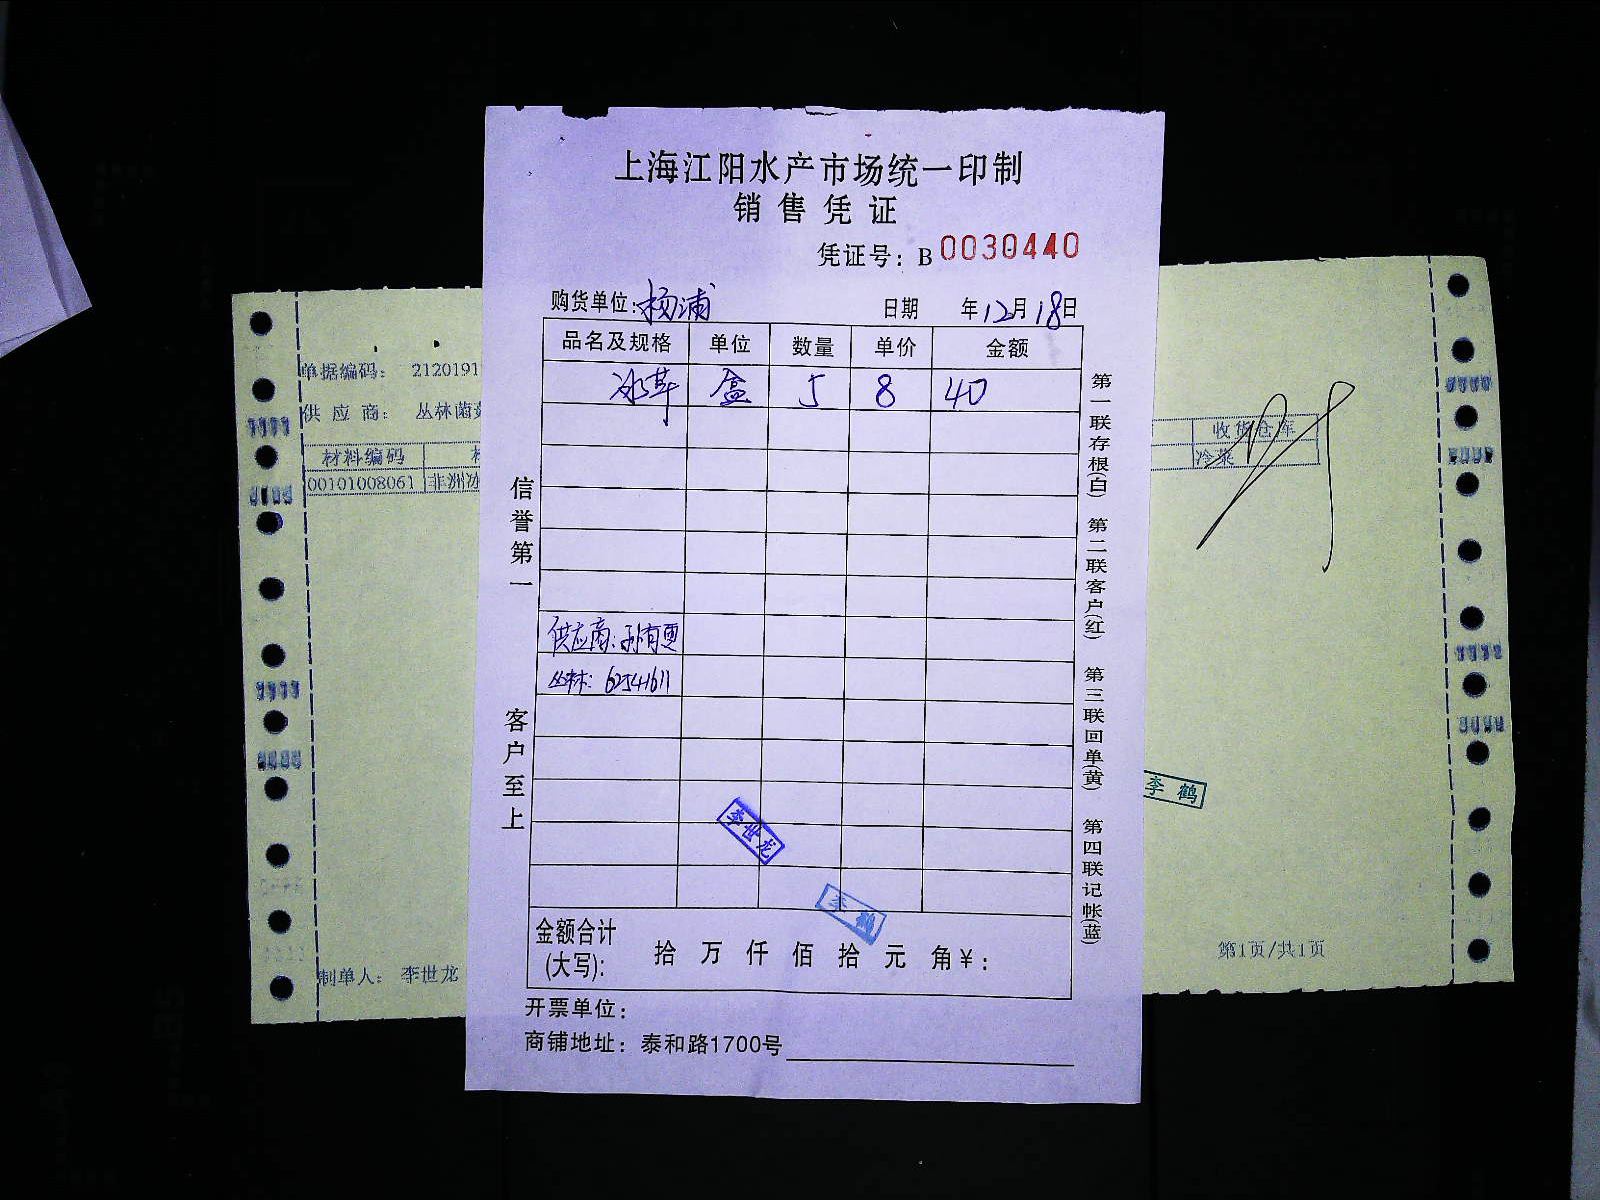 上海江阳水产市场统一印制
销售凭证
凭证号：B 0030440
购货单位：杨浦 日期 年12月18日
品名及规格 单位 数量 单价 金额
冰草 盒 5 8 40
供应商：孙有更
丛林：62541611
李世龙
李鹤
金额合计(大写)： 拾 万 仟 佰 拾 元 角 ¥：
开票单位：
商铺地址：泰和路1700号
信誉第一
客户至上
第一联存根(白) 第二联客户(红) 第三联回单(黄) 第四联记帐(蓝)
单据编码： 2120191
供应商： 丛林菌菇
材料编码
00101008061 非洲冰
制单人： 李世龙
收货仓库
冷菜
李鹤
第1页/共1页